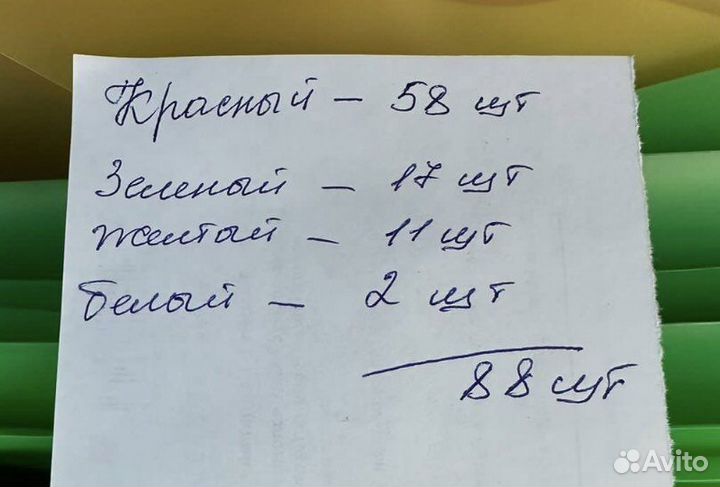 Красный – 58 шт
Зеленый – 17 шт
желтый – 11 шт
белый – 2 шт
88 шт
Avito